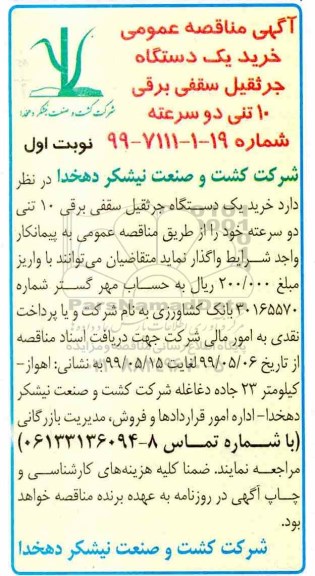 آگهی مناقصه عمومی
خرید یک دستگاه
جرثقیل سقفی برقی
۱۰ تنی دو سرعته
شماره ۱۹-۱-۷۱۱۱-۹۹
نوبت اول
شرکت کشت و صنعت نیشکر دهخدا
شرکت کشت و صنعت نیشکر دهخدا در نظر
دارد خرید یک دستگاه جرثقیل سقفی برقی ۱۰ تنی
دو سرعته خود را از طریق مناقصه عمومی به پیمانکار
واجد شرایط واگذار نماید متقاضیان می‌توانند با واریز
مبلغ ۲۰۰/۰۰۰ ریال به حساب مهر گستر شماره
۳۰۱۶۵۵۷۰ بانک کشاورزی به نام شرکت و یا پرداخت
نقدی به امور مالی شرکت جهت دریافت اسناد مناقصه
از تاریخ ۹۹/۰۵/۰۶ لغایت ۹۹/۰۵/۱۵ به نشانی: اهواز-
کیلومتر ۲۳ جاده دغاغله شرکت کشت و صنعت نیشکر
دهخدا- اداره امور قراردادها و فروش، مدیریت بازرگانی
(با شماره تماس ۸-۰۶۱۳۳۱۳۶۰۹۴)
مراجعه نمایند. ضمنا کلیه هزینه‌های کارشناسی و
چاپ آگهی در روزنامه به عهده برنده مناقصه خواهد
بود.
شرکت کشت و صنعت نیشکر دهخدا